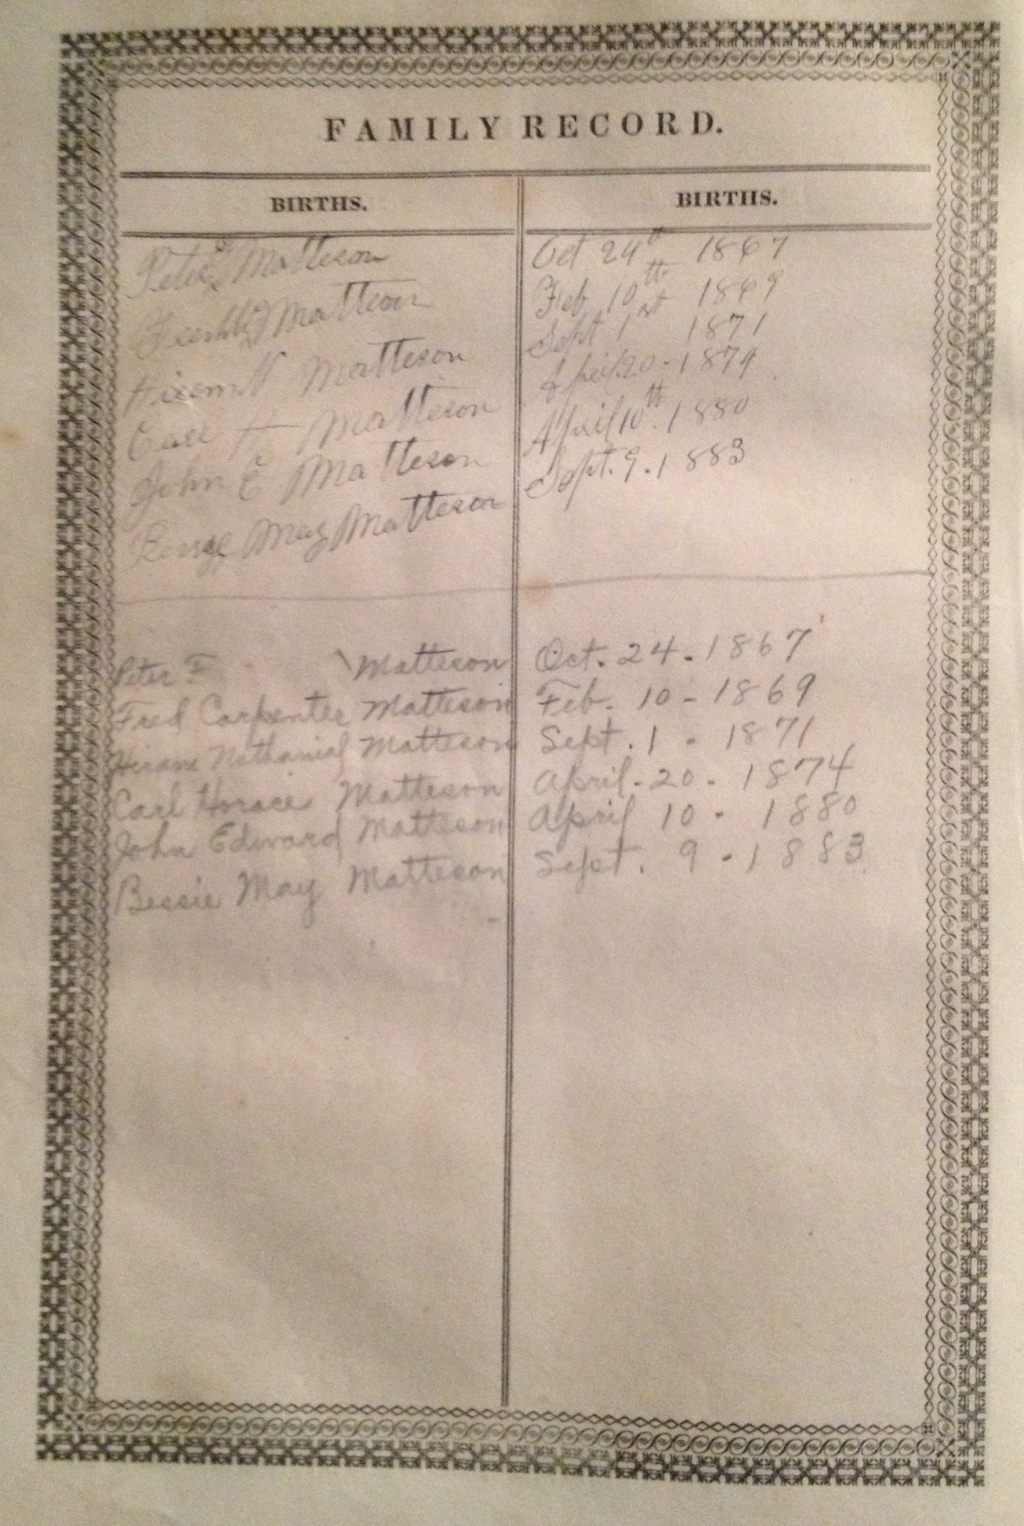 FAMILY RECORD.
BIRTHS. BIRTHS.
Matteson Oct 24th 1867
Matteson Feb 10th 1869
Hiram N Matteson Sept 1st 1871
Carl H Matteson April 20-1874
John E Matteson April 10th.1880
May Matteson Sept. 9.1883
Peter F Matteson Oct. 24.1867
Fred Carpenter Matteson Feb. 10-1869
Hiram Nathanial Matteson Sept. 1 - 1871
Carl Horace Matteson April.20-1874
John Edward Matteson April 10-1880
Bessie May Matteson Sept. 9-1883